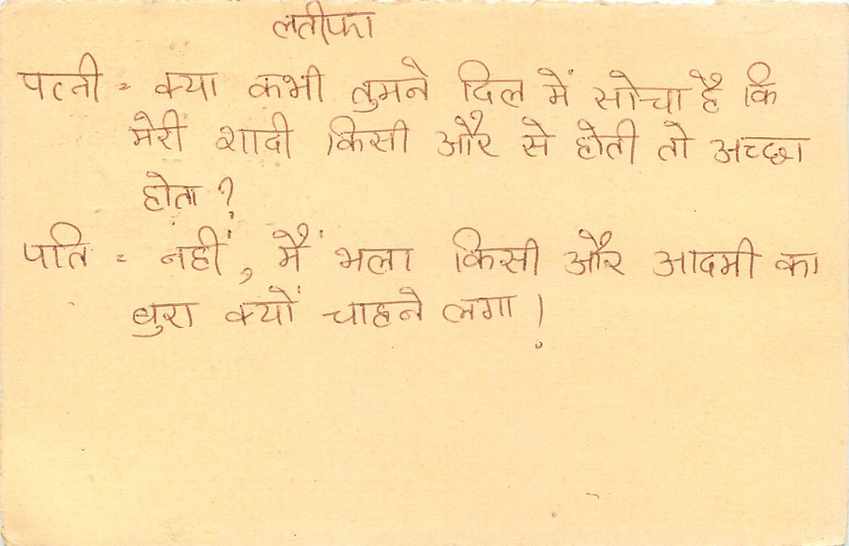 लतीफा
पत्नी = क्या कभी तुमने दिल में सोचा है कि
मेरी शादी किसी और से होती तो अच्छा
होता ?
पति = नहीं, मैं भला किसी और आदमी का
बुरा क्यों चाहने लगा !